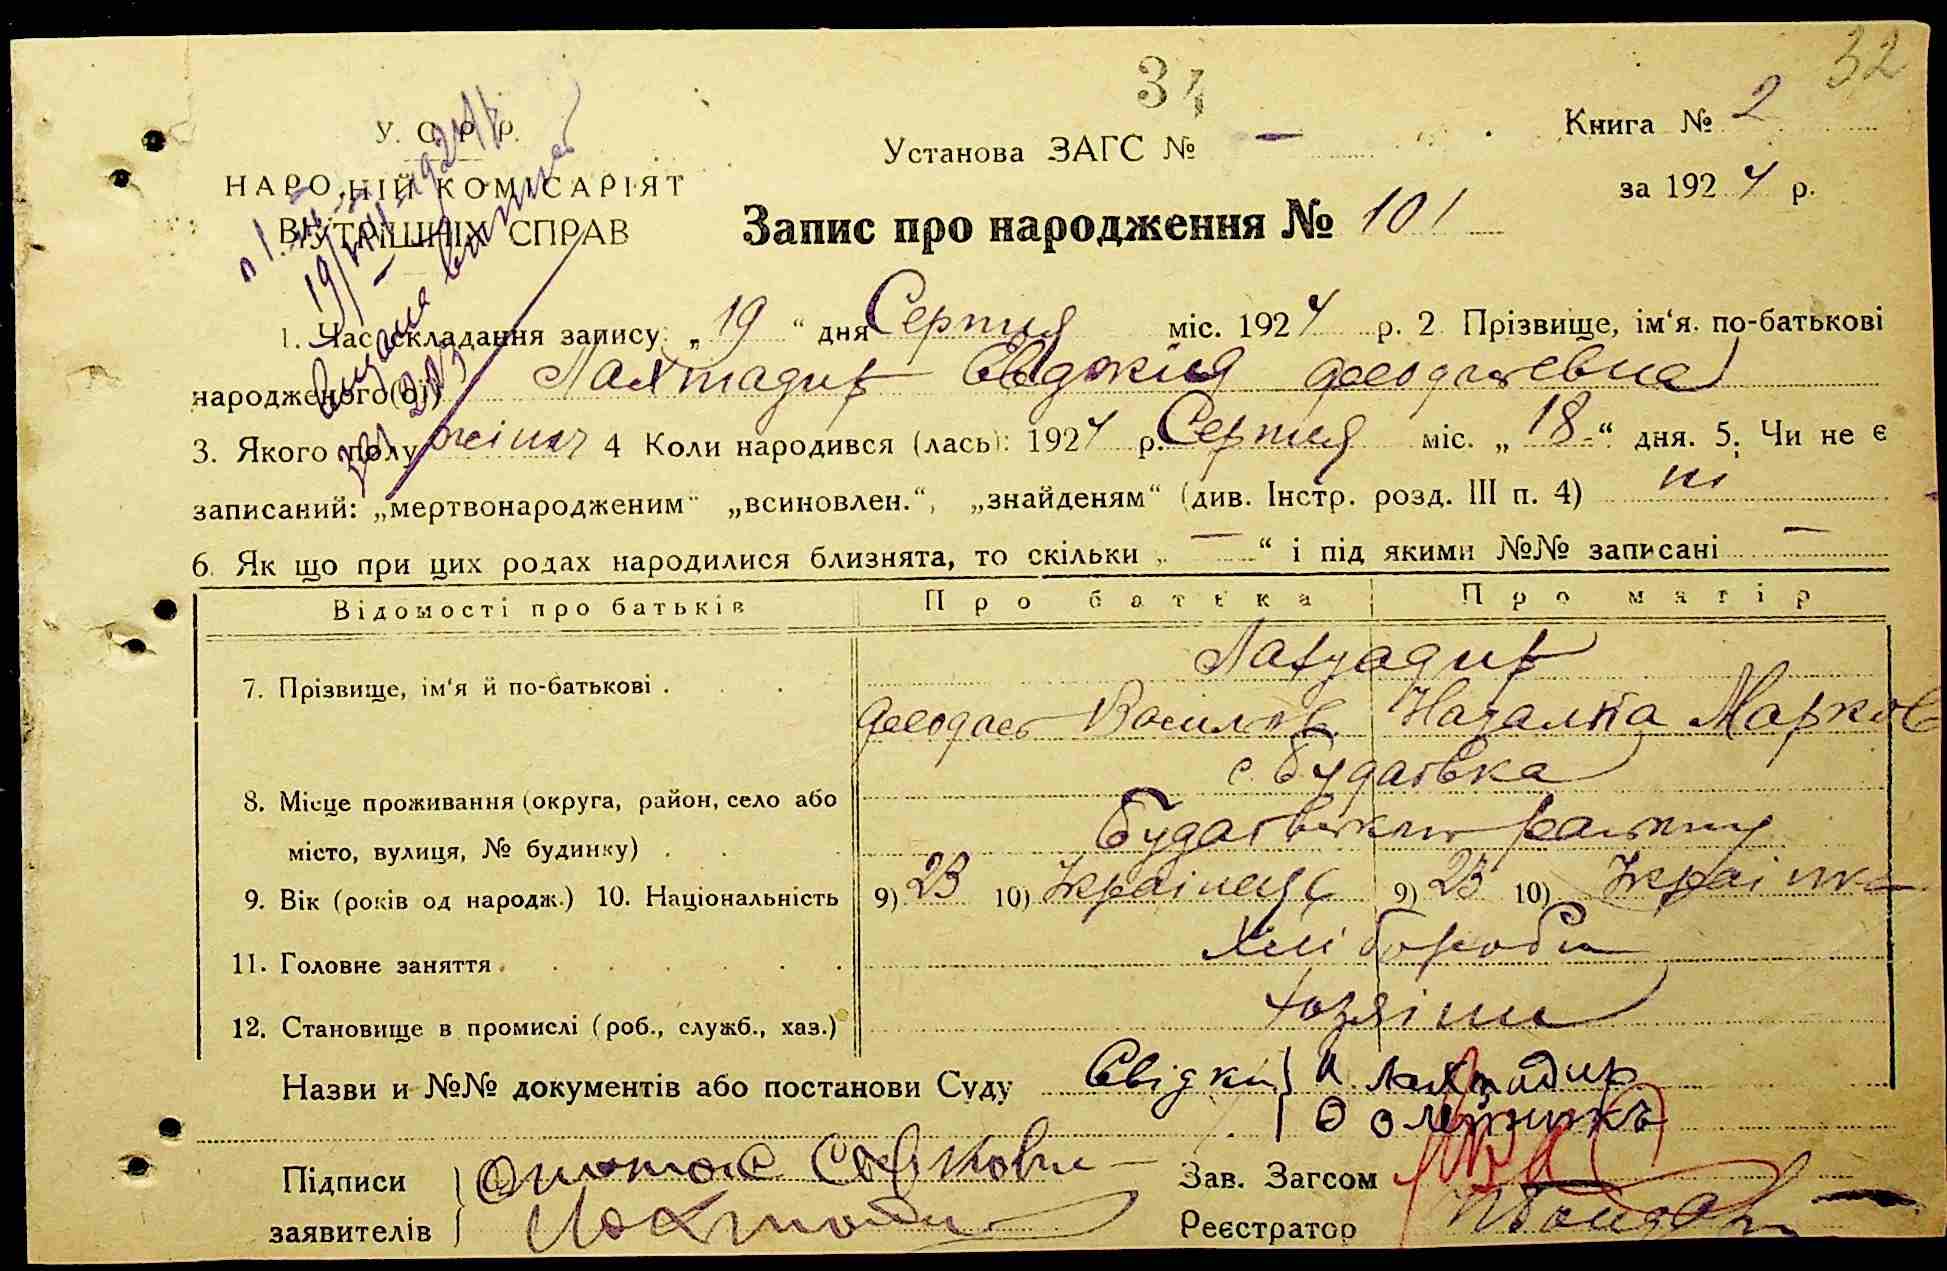 32
34
У. С. Р. Р.
Установа ЗАГС № —
Книга № 2
НАРО.НІЙ КОМІСАРІЯТ
за 1924 р.
ВНУТРІШНІХ СПРАВ
Запис про народження № 101
1. Час складання запису: „19“ дня Серпня міс. 1924 р. 2 Прізвище, ім‘я. по-батькові
народженого(ої) Лахтадир Євдокия Феодосьевна
3. Якого полу жіноч 4 Коли народився (лась): 1924 р. Серпня міс. „18“ дня. 5. Чи не є
записаний: „мертвонародженим“ „всиновлен.“, „знайденям“ (див. Інстр. розд. III п. 4) ні
6. Як що при цих родах народилися близнята, то скільки „—“ і під якими №№ записані —
Відомості про батьків Про батька Про матір
Лахтадир
7. Прізвище, ім‘я й по-батькові .
Феодось Васильев Наталка Марков
с. Будаївка
8. Місце проживання (округа, район, село або
Будаївського району
місто, вулиця, № будинку)
9. Вік (років од народж.) 10. Національність 9) 23 10) Україець 9) 23 10) Українка
Хлібороби
11. Головне заняття
хозяіни
12. Становище в промислі (роб., служб., хаз.)
Назви и №№ документів або постанови Суду Свідки} И Лахтадир
О Олейникъ
Підписи
Зав. Загсом
заявителів Лахтади
Реєстратор